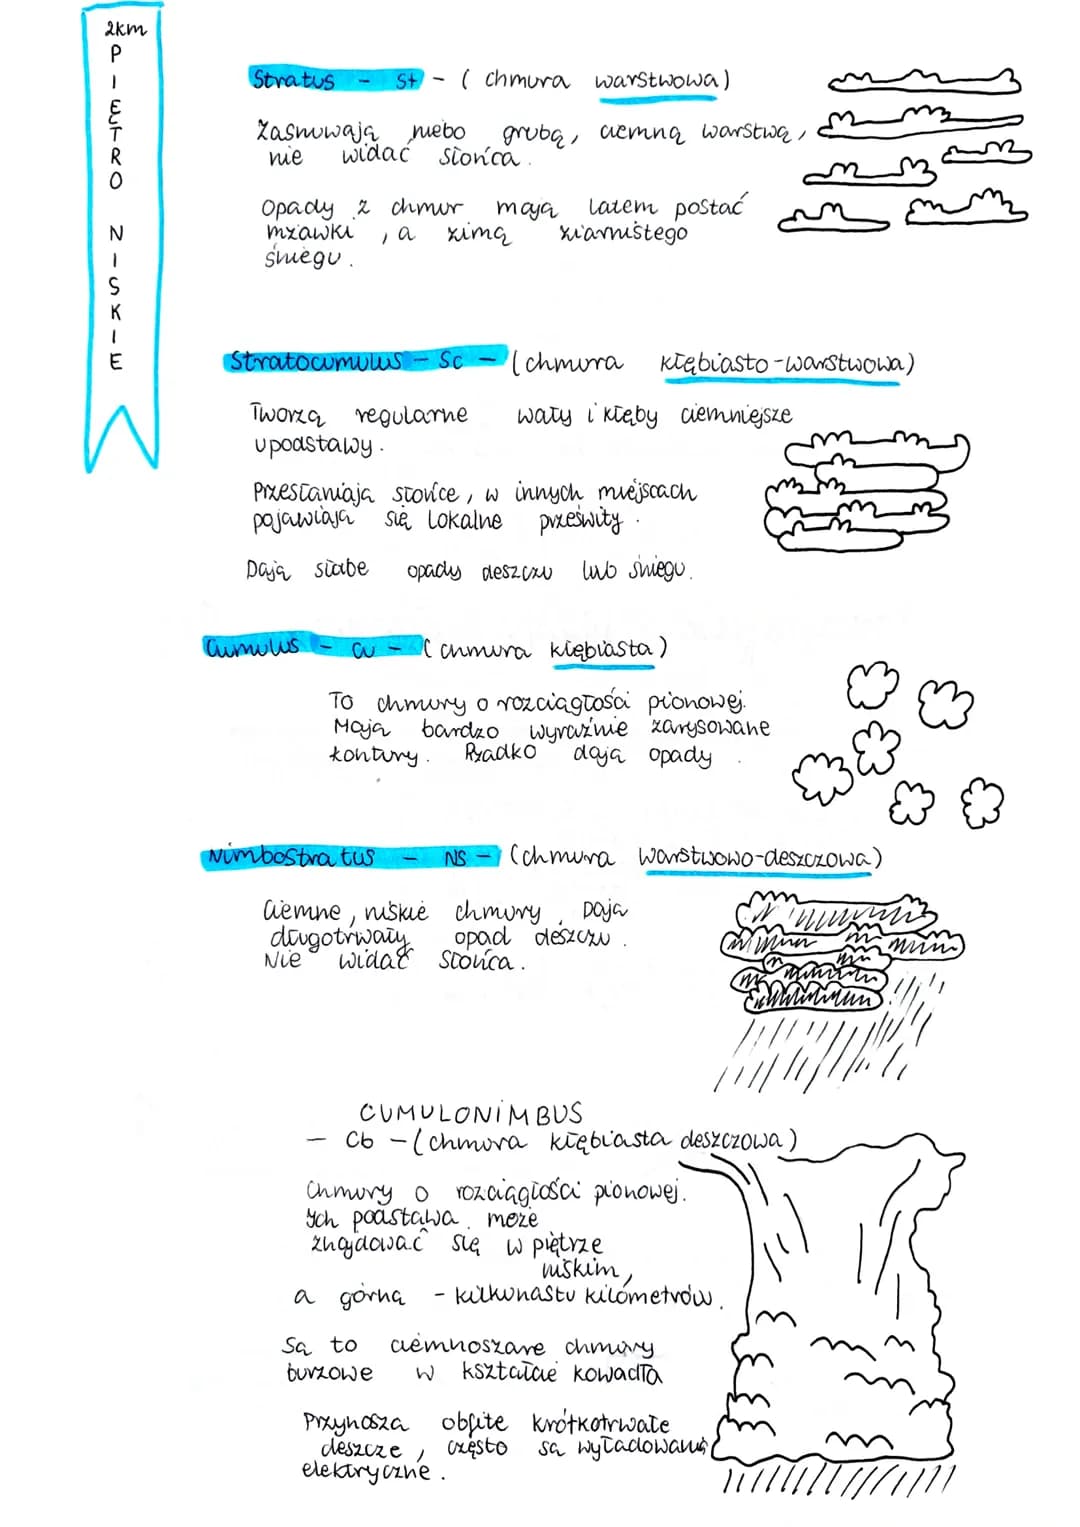 2km
PIĘTRO NISKIE
Stratus - St - (chmura warstwowa)
Zasnuwają niebo grubą, ciemną warstwą,
nie widać słońca.
Opady z chmur mają latem postać
mżawki, a zimą ziarnistego
śniegu.
Stratocumulus - Sc - (chmura kłębiasto-warstwowa)
Tworzą regularne wały i kłęby ciemniejsze
u podstawy.
Przesłaniają słońce, w innych miejscach
pojawiają się lokalne prześwity.
Dają słabe opady deszczu lub śniegu.
Cumulus - Cu - (chmura kłębiasta)
To chmury o rozciągłości pionowej.
Mają bardzo wyraźnie zarysowane
kontury. Rzadko dają opady.
Nimbostratus - NS - (chmura warstwowo-deszczowa)
Ciemne, niskie chmury. Dają
długotrwały opad deszczu.
Nie widać Słońca.
CUMULONIMBUS
- Cb - (chmura kłębiasta deszczowa)
Chmury o rozciągłości pionowej.
Ich podstawa może
znajdować się w piętrze
niskim,
a górna - kilkunastu kilometrów.
Są to ciemnoszare chmury
burzowe w kształcie kowadła
Przynoszą obfite krótkotrwałe
deszcze, często są wyładowania
elektryczne.